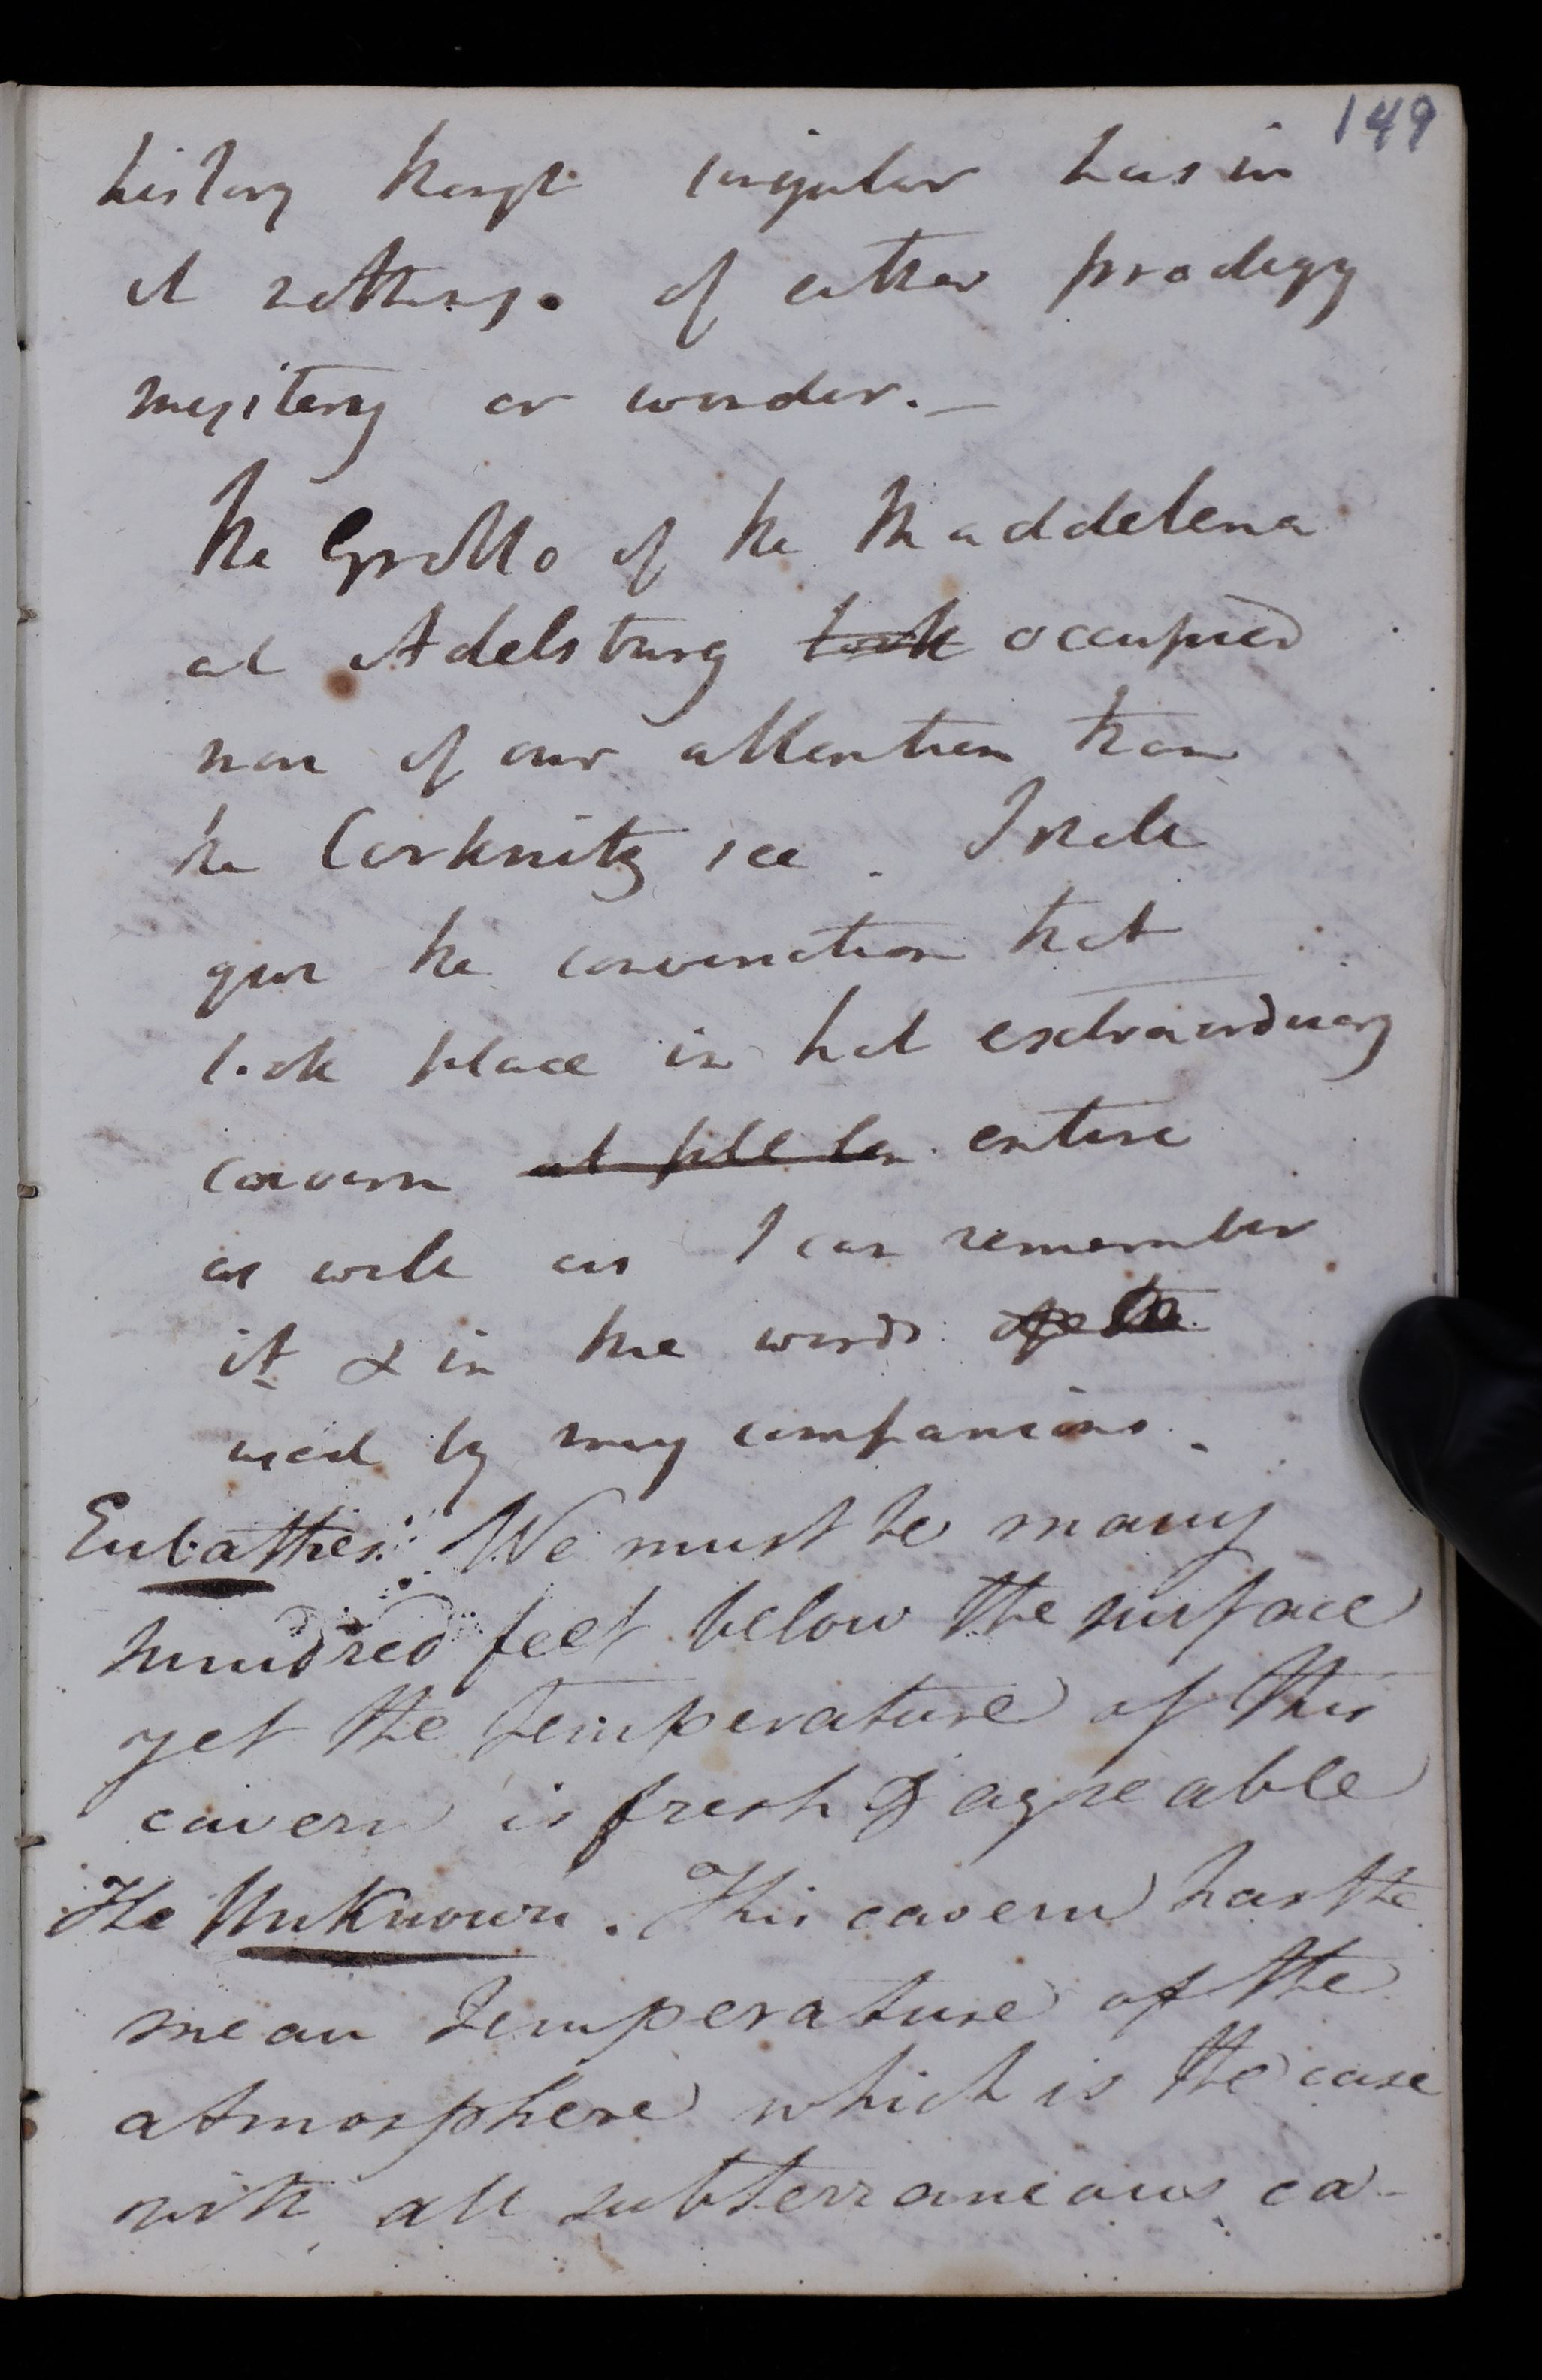 149
history though singular has in
it nothing. of either prodigy
mysitery or wonder. —
The Grotto of the Maddelena
at Adelsburg took occupied
more of our attention than
the Cirknitz see. I shall
give the conversation that
took place in that extraordinary
cavern entire
as well as I can remember
it & in the words of the
used by my companions.
Eubathes. We must be many
hundred feet below the surface
yet the temperature of this
cavern is fresh & agreable
The UnKnown. This cavern has the
mean temperature of the
atmosphere which is the case
with all subterraneous ca-